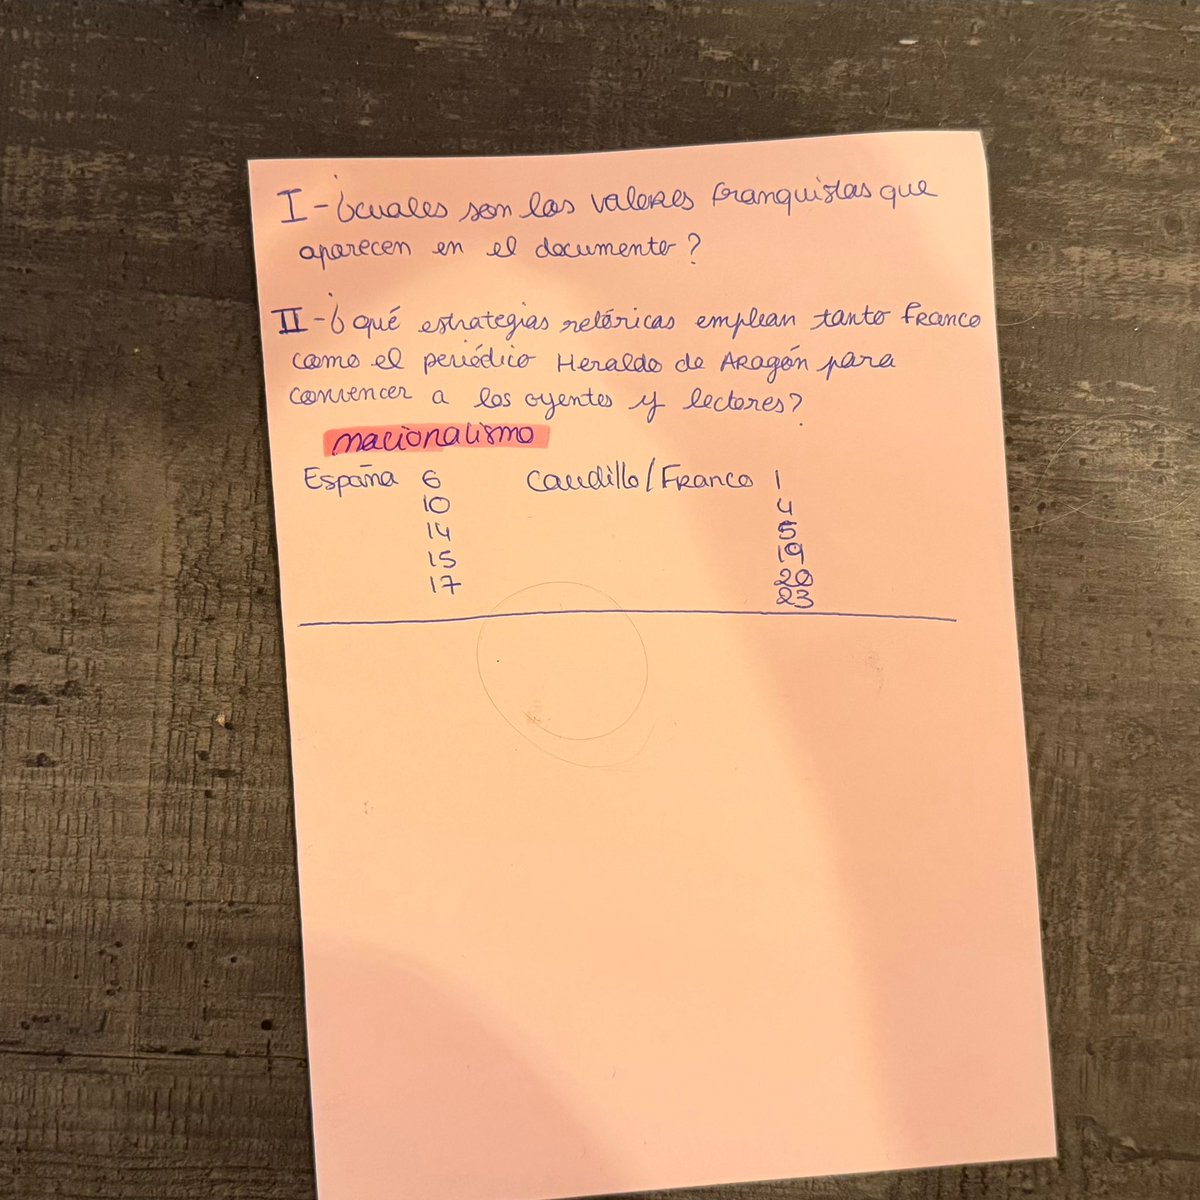 I - ¿cuales son los valores franquistas que
aparecen en el documento?
II - ¿qué estrategias retóricas emplean tanto Franco
como el periódico Heraldo de Aragón para
convencer a los oyentes y lectores?
nacionalismo
España 6 Caudillo/Franco 1
10 4
14 5
15 19
17 20
23